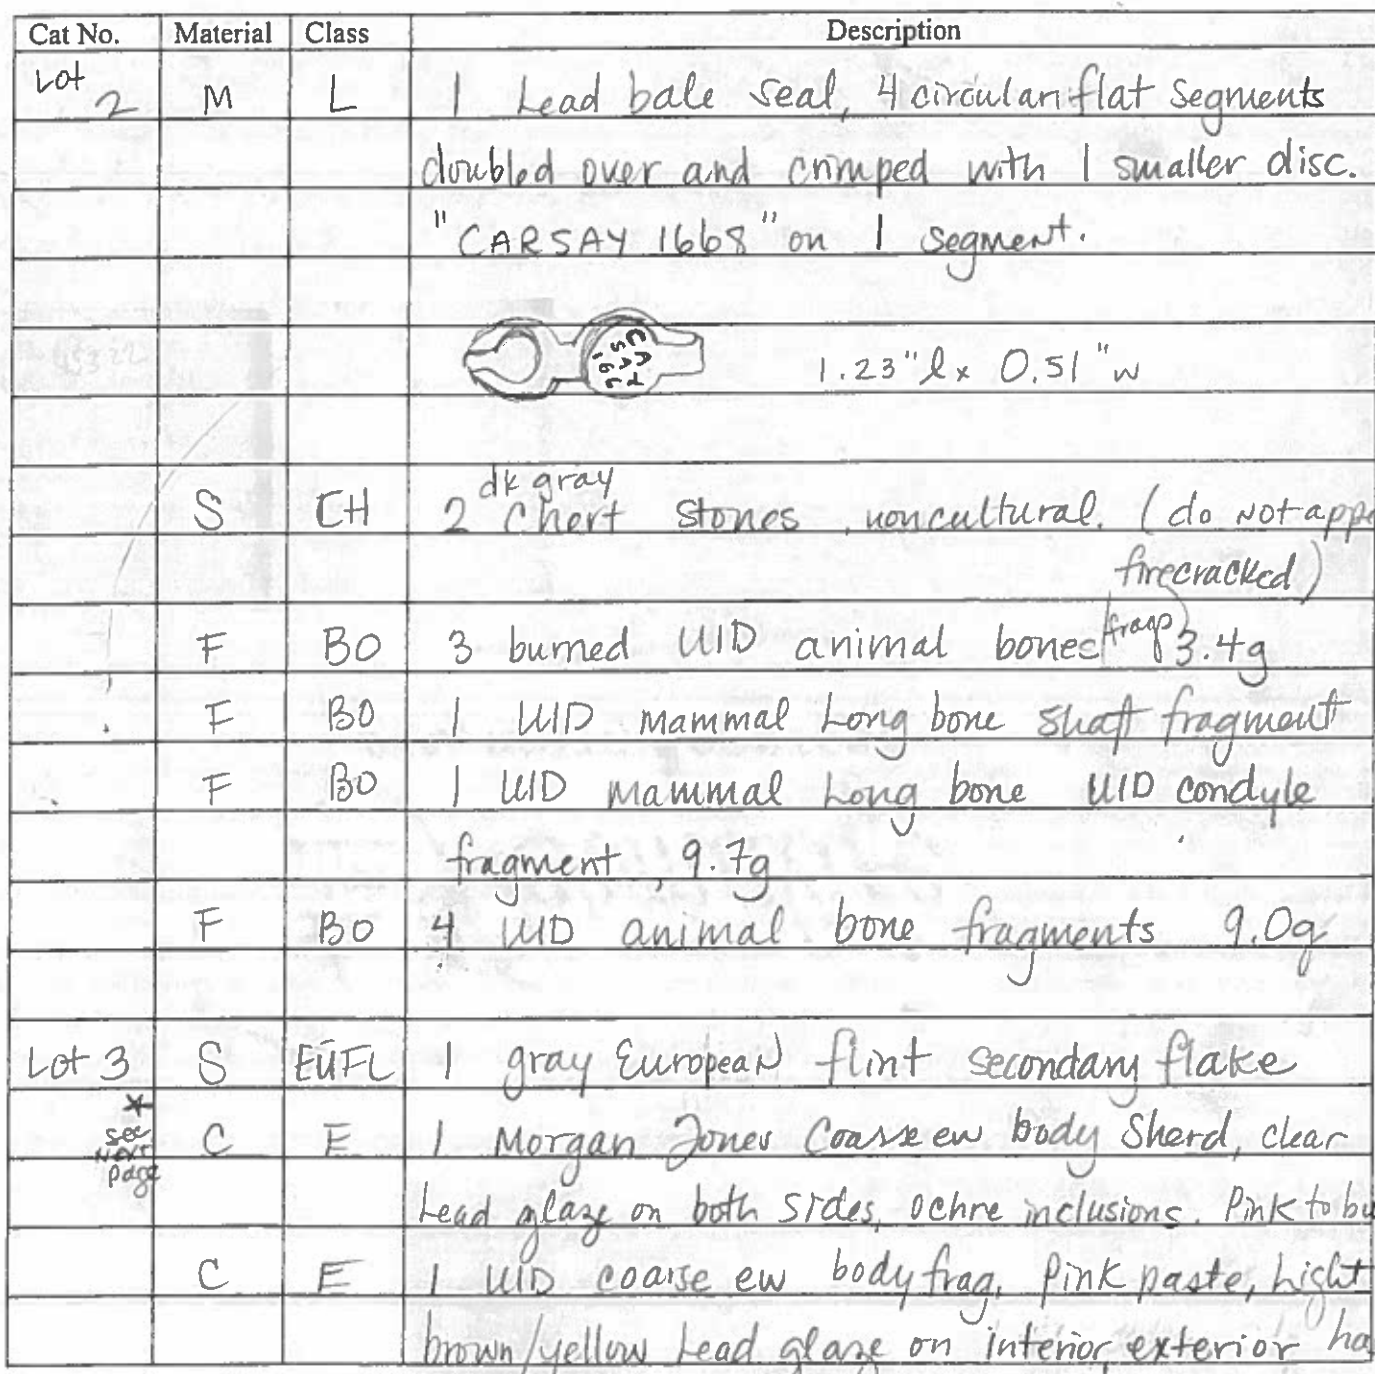 Cat No. Material Class Description
Lot 2 M L 1 Lead bale seal, 4 circular flat segments
doubled over and crimped with 1 smaller disc.
"CARSAY 1668" on 1 segment.
CAR
SAY
166
1.23"l x 0.51"w
dk gray
S CH 2 Chert stones, noncultural. (do not appe
firecracked)
F BO 3 burned UID animal bone frags 3.4g
F BO 1 UID mammal Long bone shaft fragment
F BO 1 UID mammal Long bone UID condyle
fragment, 9.7g
F BO 4 UID animal bone fragments 9.0g
Lot 3 S EUFL 1 gray European flint secondary flake
* see next page C E 1 Morgan Jones Coarse ew body Sherd, clear
Lead glaze on both sides, ochre inclusions. Pink to bu
C E 1 UID coarse ew body frag, Pink paste, Light
brown/yellow Lead glaze on interior, exterior ha